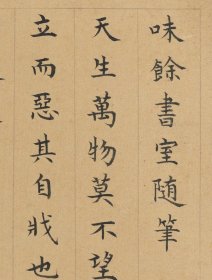 味餘書室随筆
天生萬物莫不望
立而惡其自戕也